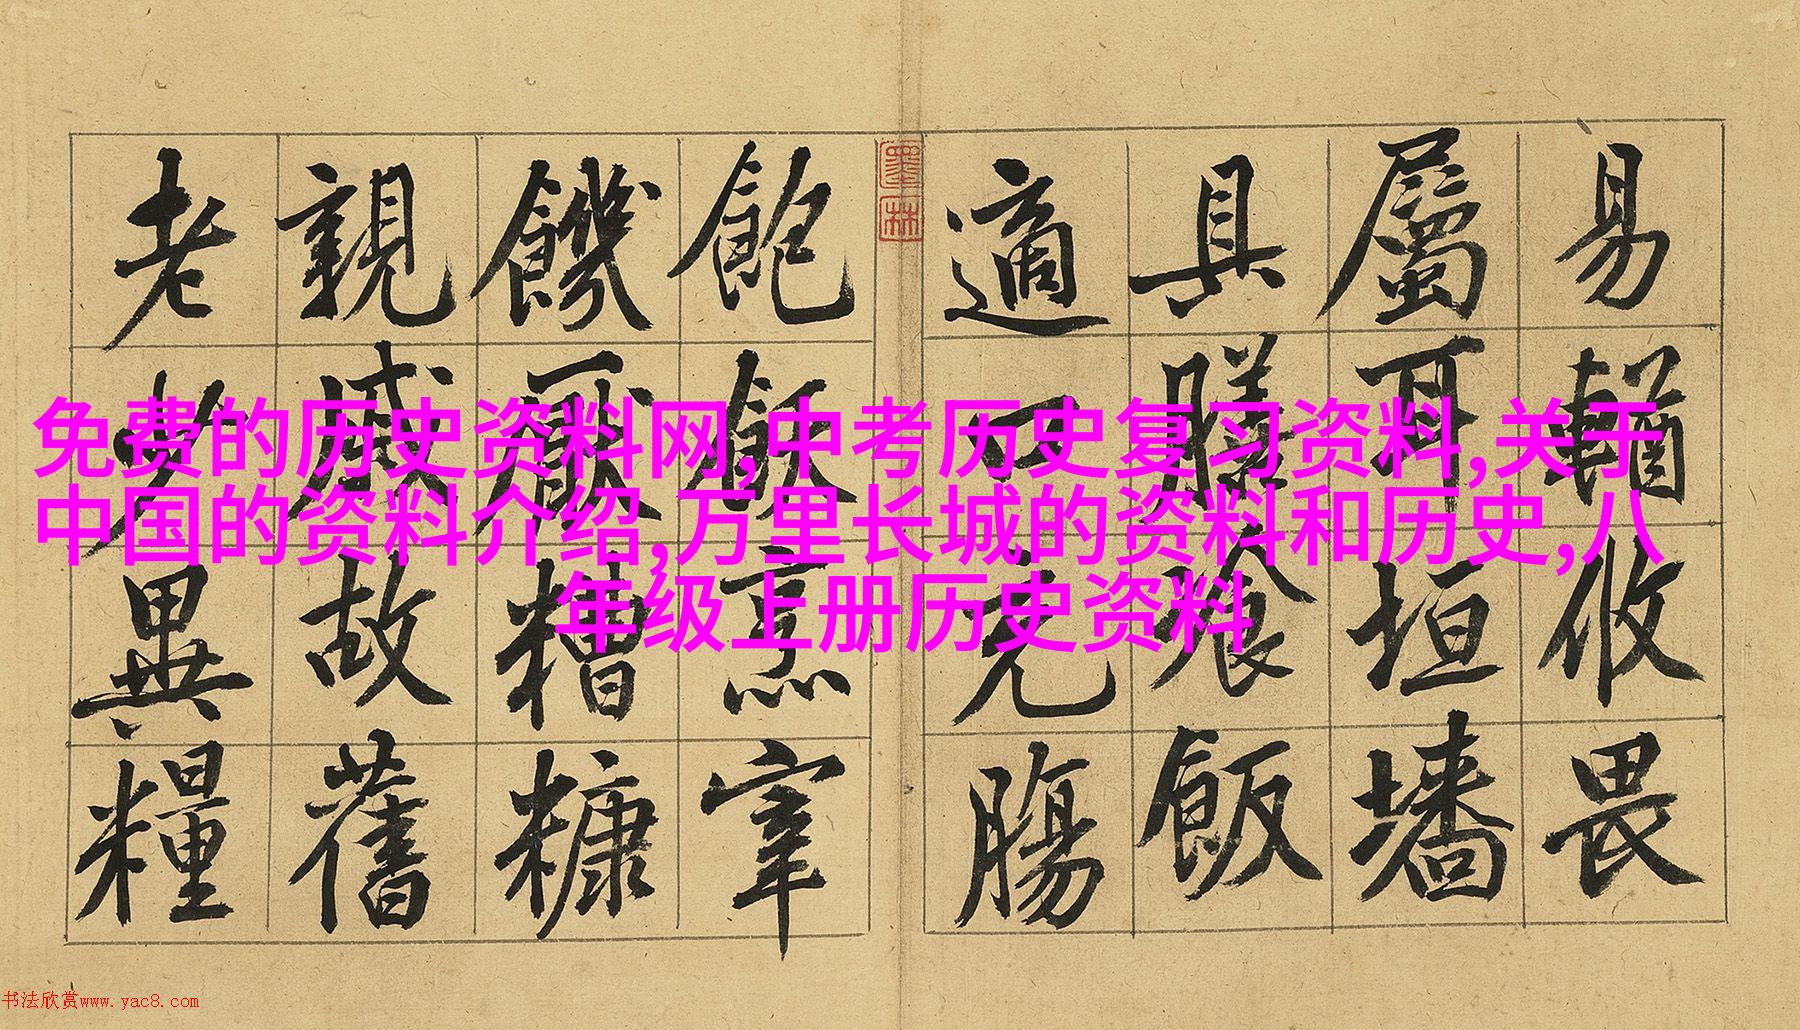 易輶攸畏
屬耳垣墻
具膳飡飯
適口充腸
飽飫烹宰
饑厭糟糠
親戚故舊
老少異糧
墨林
免费的历史资料网,中考历史复习资料,关于
中国的资料介绍,万里长城的资料和历史,八
年级上册历史资料
书法欣赏www.yac8.com